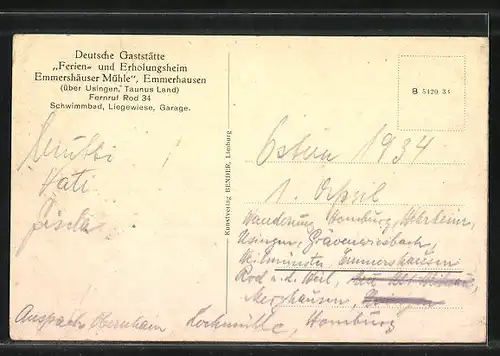 Deutsche Gaststätte
„Ferien- und Erholungsheim
Emmershäuser Mühle", Emmerhausen
(über Usingen, Taunus Land)
Fernruf Rod 34
Schwimmbad, Liegewiese, Garage.
B 5420 34
Kunstverlag BENDER, Limburg
Mutti
Vati
Gisela
Ostern 1934
1. April
Wanderung Homburg, Wehrheim,
Usingen, Grävenwiesbach,
Emmershausen
Rod a.d. Weil,
Merzhausen,
Anspach, Obernhain Lochmühle, Homburg